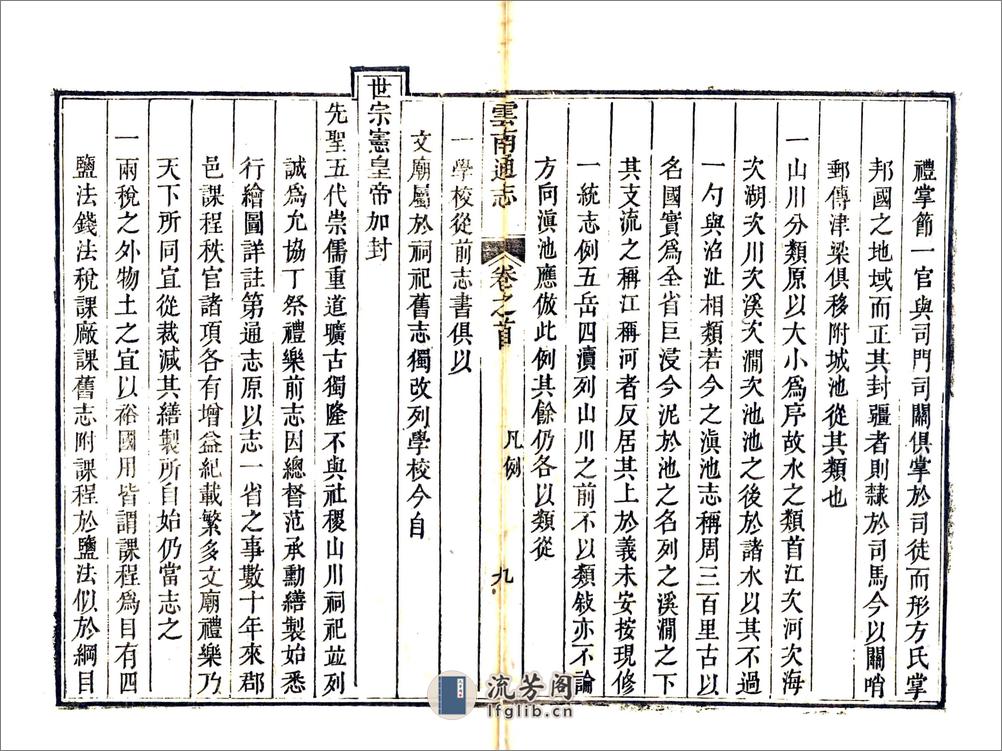 禮掌節一官與司門司關俱掌於司徒而形方氏掌
邦國之地域而正其封疆者則隸於司馬今以關哨
郵傳津梁俱移附城池從其類也
一山川分類原以大小爲序故水之類首江次河次海
次湖次川次溪次澗次池池之後於諸水以其不過
一勺與沼沚相類若今之滇池志稱周三百里古以
名國實爲全省巨浸今泥於池之名列之溪澗之下
其支流之稱江稱河者反居其上於義未安按現修
一統志例五岳四瀆列山川之前不以類敍亦不論
方向滇池應倣此例其餘仍各以類從
雲南通志
卷之首
凡例
九
一學校從前志書俱以
文廟屬於祠祀舊志獨改列學校今自
世宗憲皇帝加封
先聖五代崇儒重道曠古獨隆不與社稷山川祠祀並列
誠爲允協丁祭禮樂前志因總督范承勳繕製始悉
行繪圖詳註第通志原以志一省之事數十年來郡
邑課程秩官諸項各有增益紀載繁多文廟禮樂乃
天下所同宜從裁減其繕製所自始仍當志之
一兩稅之外物土之宜以裕國用皆謂課程爲目有四
鹽法錢法稅課廠課舊志附課程於鹽法似於綱目
流芳阁
lfglib.cn